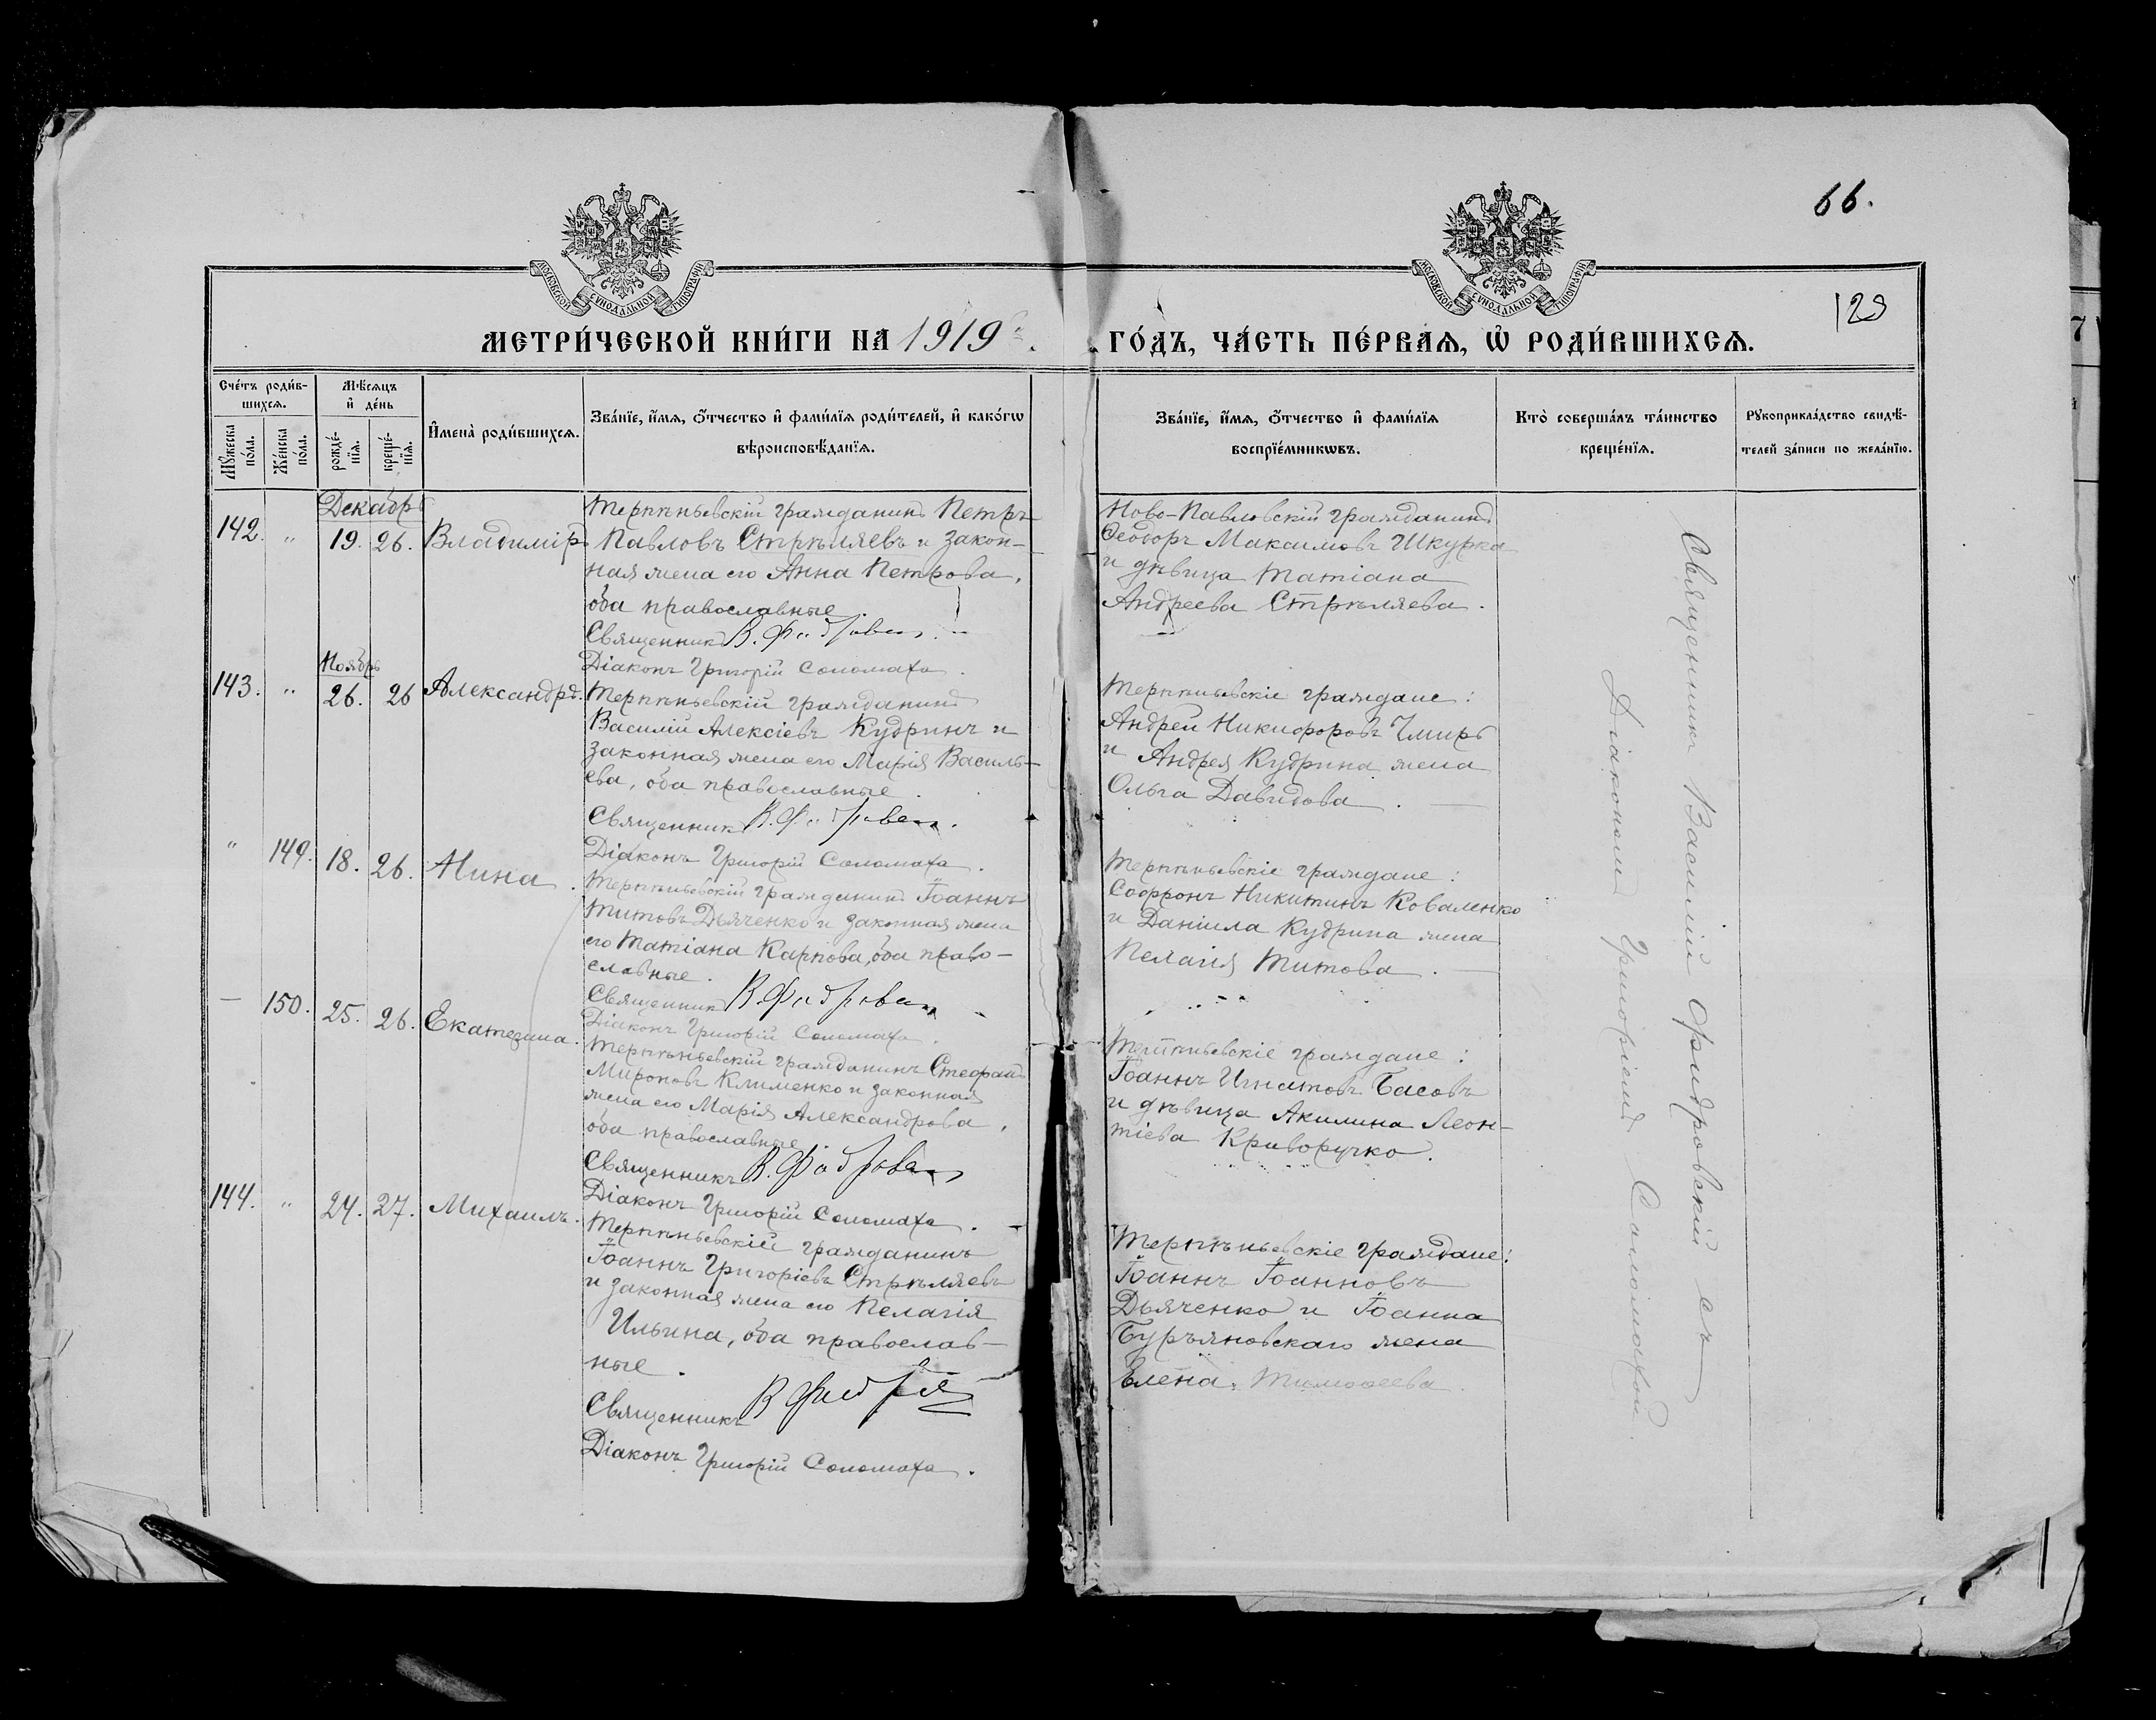 66.
123
МОСКОВСКОЙ СѴНОДАЛЬНОЙ ТИПОГРАФІИ
МОСКОВСКОЙ СѴНОДАЛЬНОЙ ТИПОГРАФІИ
МЕТРИ́ЧЕСКОЙ КНИ́ГИ НА 1919
ГО́ДЪ, ЧА́СТЬ ПЕ́РВАЯ, Ѡ РОДИ́ВШИХСЯ.
Сче́тъ роди́в-
шихся.
Мѣ́сяцъ
и де́нь
Му́жеска по́ла.
Же́нска по́ла.
рожде́-
нїя.
креще́-
нїя.
Имена̀ роди́вшихся.
Зва́нїе, и́мя, о́тчество и фами́лїя роди́телей, и како́гѡ
вѣроисповѣ́данїя.
Зва́нїе, и́мя, о́тчество и фами́лїя
воспрїе́мникѡвъ.
Кто̀ соверша́лъ та́инство
креще́нїя.
Рукоприкла́дство свидѣ́-
телей за́писи по жела́нїю.
Декабрь
142. " 19. 26. Владиміръ
Терпѣньевскій гражданинъ Петръ
Павловъ Стрѣляевъ и закон-
ная жена его Анна Петрова,
оба православные.
Священникъ В.
Діаконъ Григорій Соломаха.
Ново-Павловскій гражданинъ
Ѳеодоръ Максимовъ Шкурка
и дѣвица Татіана
Андреева Стрѣляева.
Ноябрь
143. " 26. 26 Александръ.
Терпѣньевскій гражданинъ
Василій Алексіевъ Кудринъ и
законная жена его Марія Василь-
ева, оба православные.
Священникъ В.
Діаконъ Григорій Соломаха.
Терпѣньевскіе граждане:
Андрей Никифоровъ Чмирь
и Андрея Кудрина жена
Ольга Давидова.
" 149. 18. 26. Нина.
Терпѣньевскій гражданинъ Іоаннъ
Титовъ Дьяченко и законная жена
его Татіана Карпова, оба право-
славные.
Священникъ В.
Діаконъ Григорій Соломаха.
Терпѣньевскіе граждане:
Софронъ Никитинъ Коваленко
и Даніила Кудрина жена
Пелагія Титова.
— 150. 25. 26. Екатерина.
Терпѣньевскій гражданинъ Стефанъ
Мироновъ Клименко и законная
жена его Марія Александрова,
оба православные.
Священникъ В.
Діаконъ Григорій Соломаха.
Терпѣньевскіе граждане:
Іоаннъ Игнатовъ Басовъ
и дѣвица Акилина Леон-
тіева Криворучко.
144. " 24. 27. Михаилъ.
Терпѣньевскій гражданинъ
Іоаннъ Григоріевъ Стрѣляевъ
и законная жена его Пелагія
Ильина, оба православ-
ные.
Священникъ В
Діаконъ Григорій Соломаха.
Терпѣньевскіе граждане:
Іоаннъ Іоанновъ
Дьяченко и Іоанна
Бурьяновскаго жена
Елена Тимоѳеева.
Священникъ Василій Фидровскій съ
Діакономъ Григоріемъ Соломахой.
7